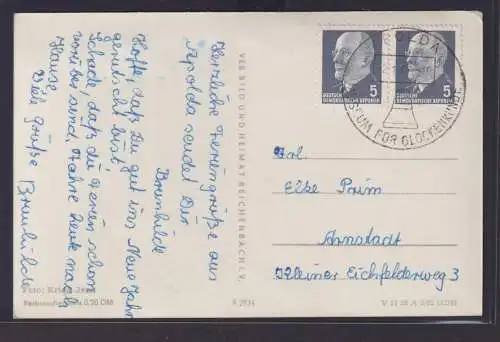 Herzliche Feriengrüße aus
Apolda sendet Dir
Brunhilde
Hoffe daß Du gut ins Neue Jahr
gerutscht bist.
Schade daß die Ferien schon
vorbei sind. Fahre heute nach
Hause.
Viele Grüße Brunhilde
Foto: Jena
0,20 DM
VEB BILD UND HEIMAT REICHENBACH I. V.
A 7934
DEUTSCHE
DEMOKRATISCHE REPUBLIK
5
DEUTSCHE
DEMOKRATISCHE REPUBLIK
5
UM FÜR GLOCKENKUNDE
Frl.
Elke Prim
Arnstadt
Kleiner Eichfelderweg 3
V 11 28 A